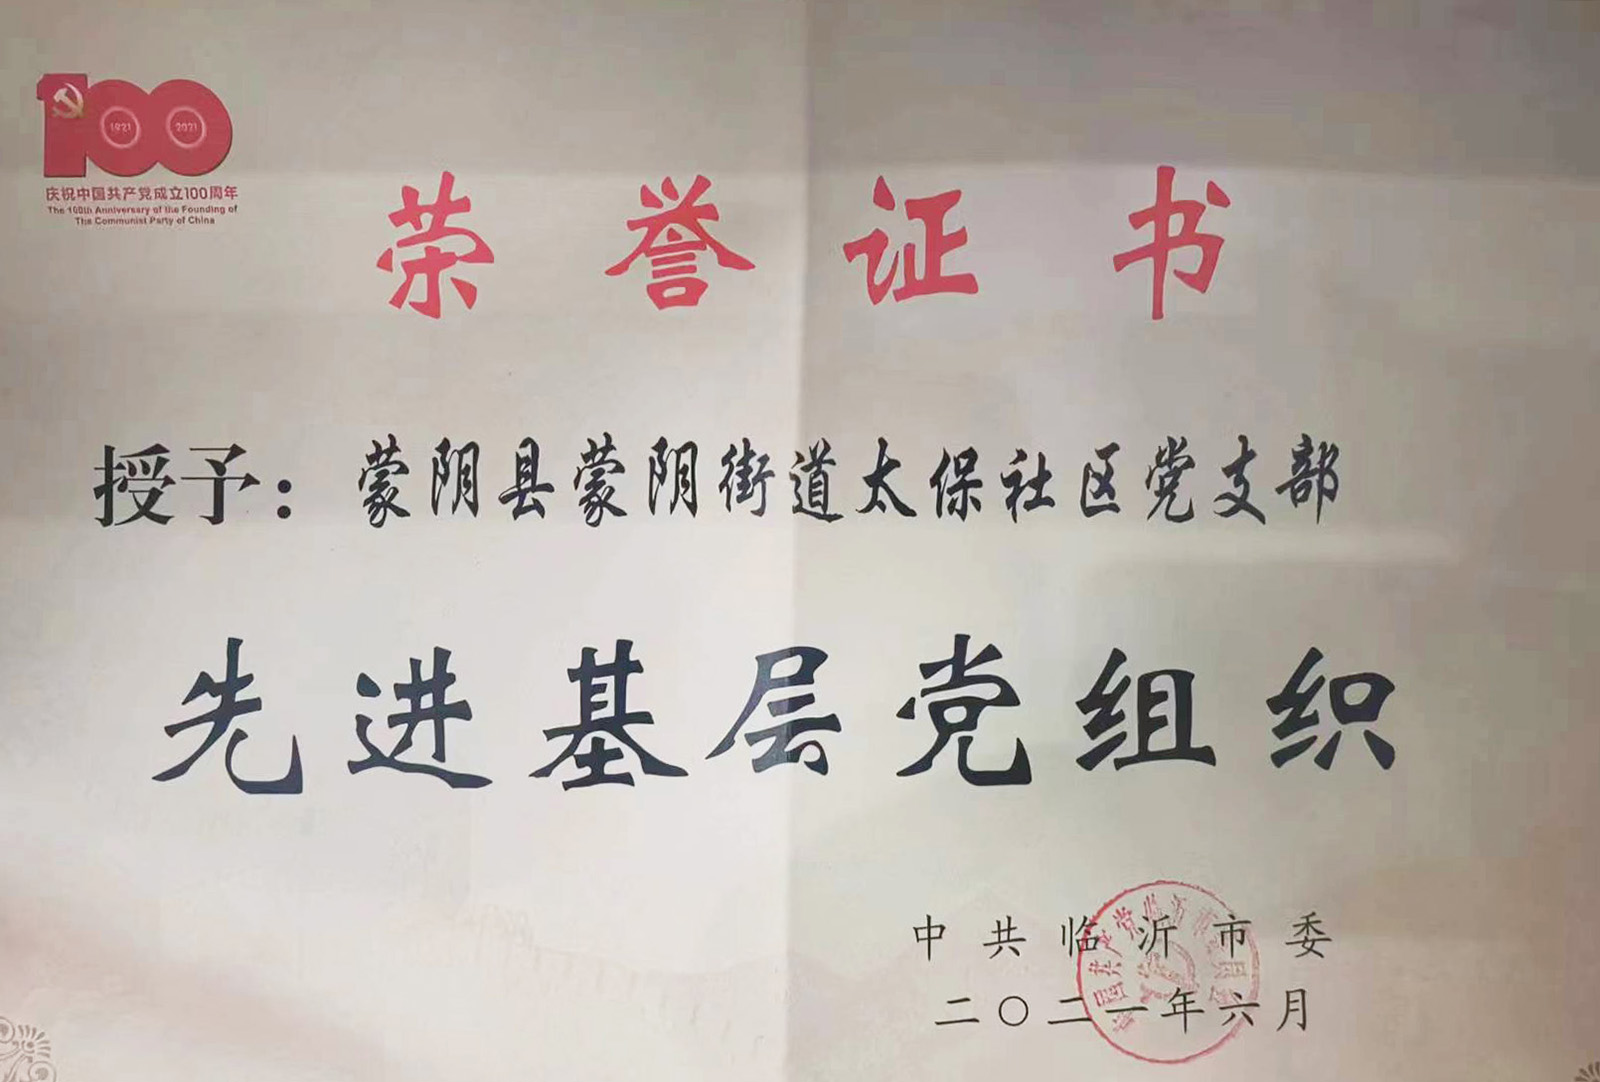 1921 2021
庆祝中国共产党成立100周年
The 100th Anniversary of the Founding of
The Communist Party of China
荣誉证书
授予：蒙阴县蒙阴街道太保社区党支部
先进基层党组织
中共临沂市委
二〇二一年六月